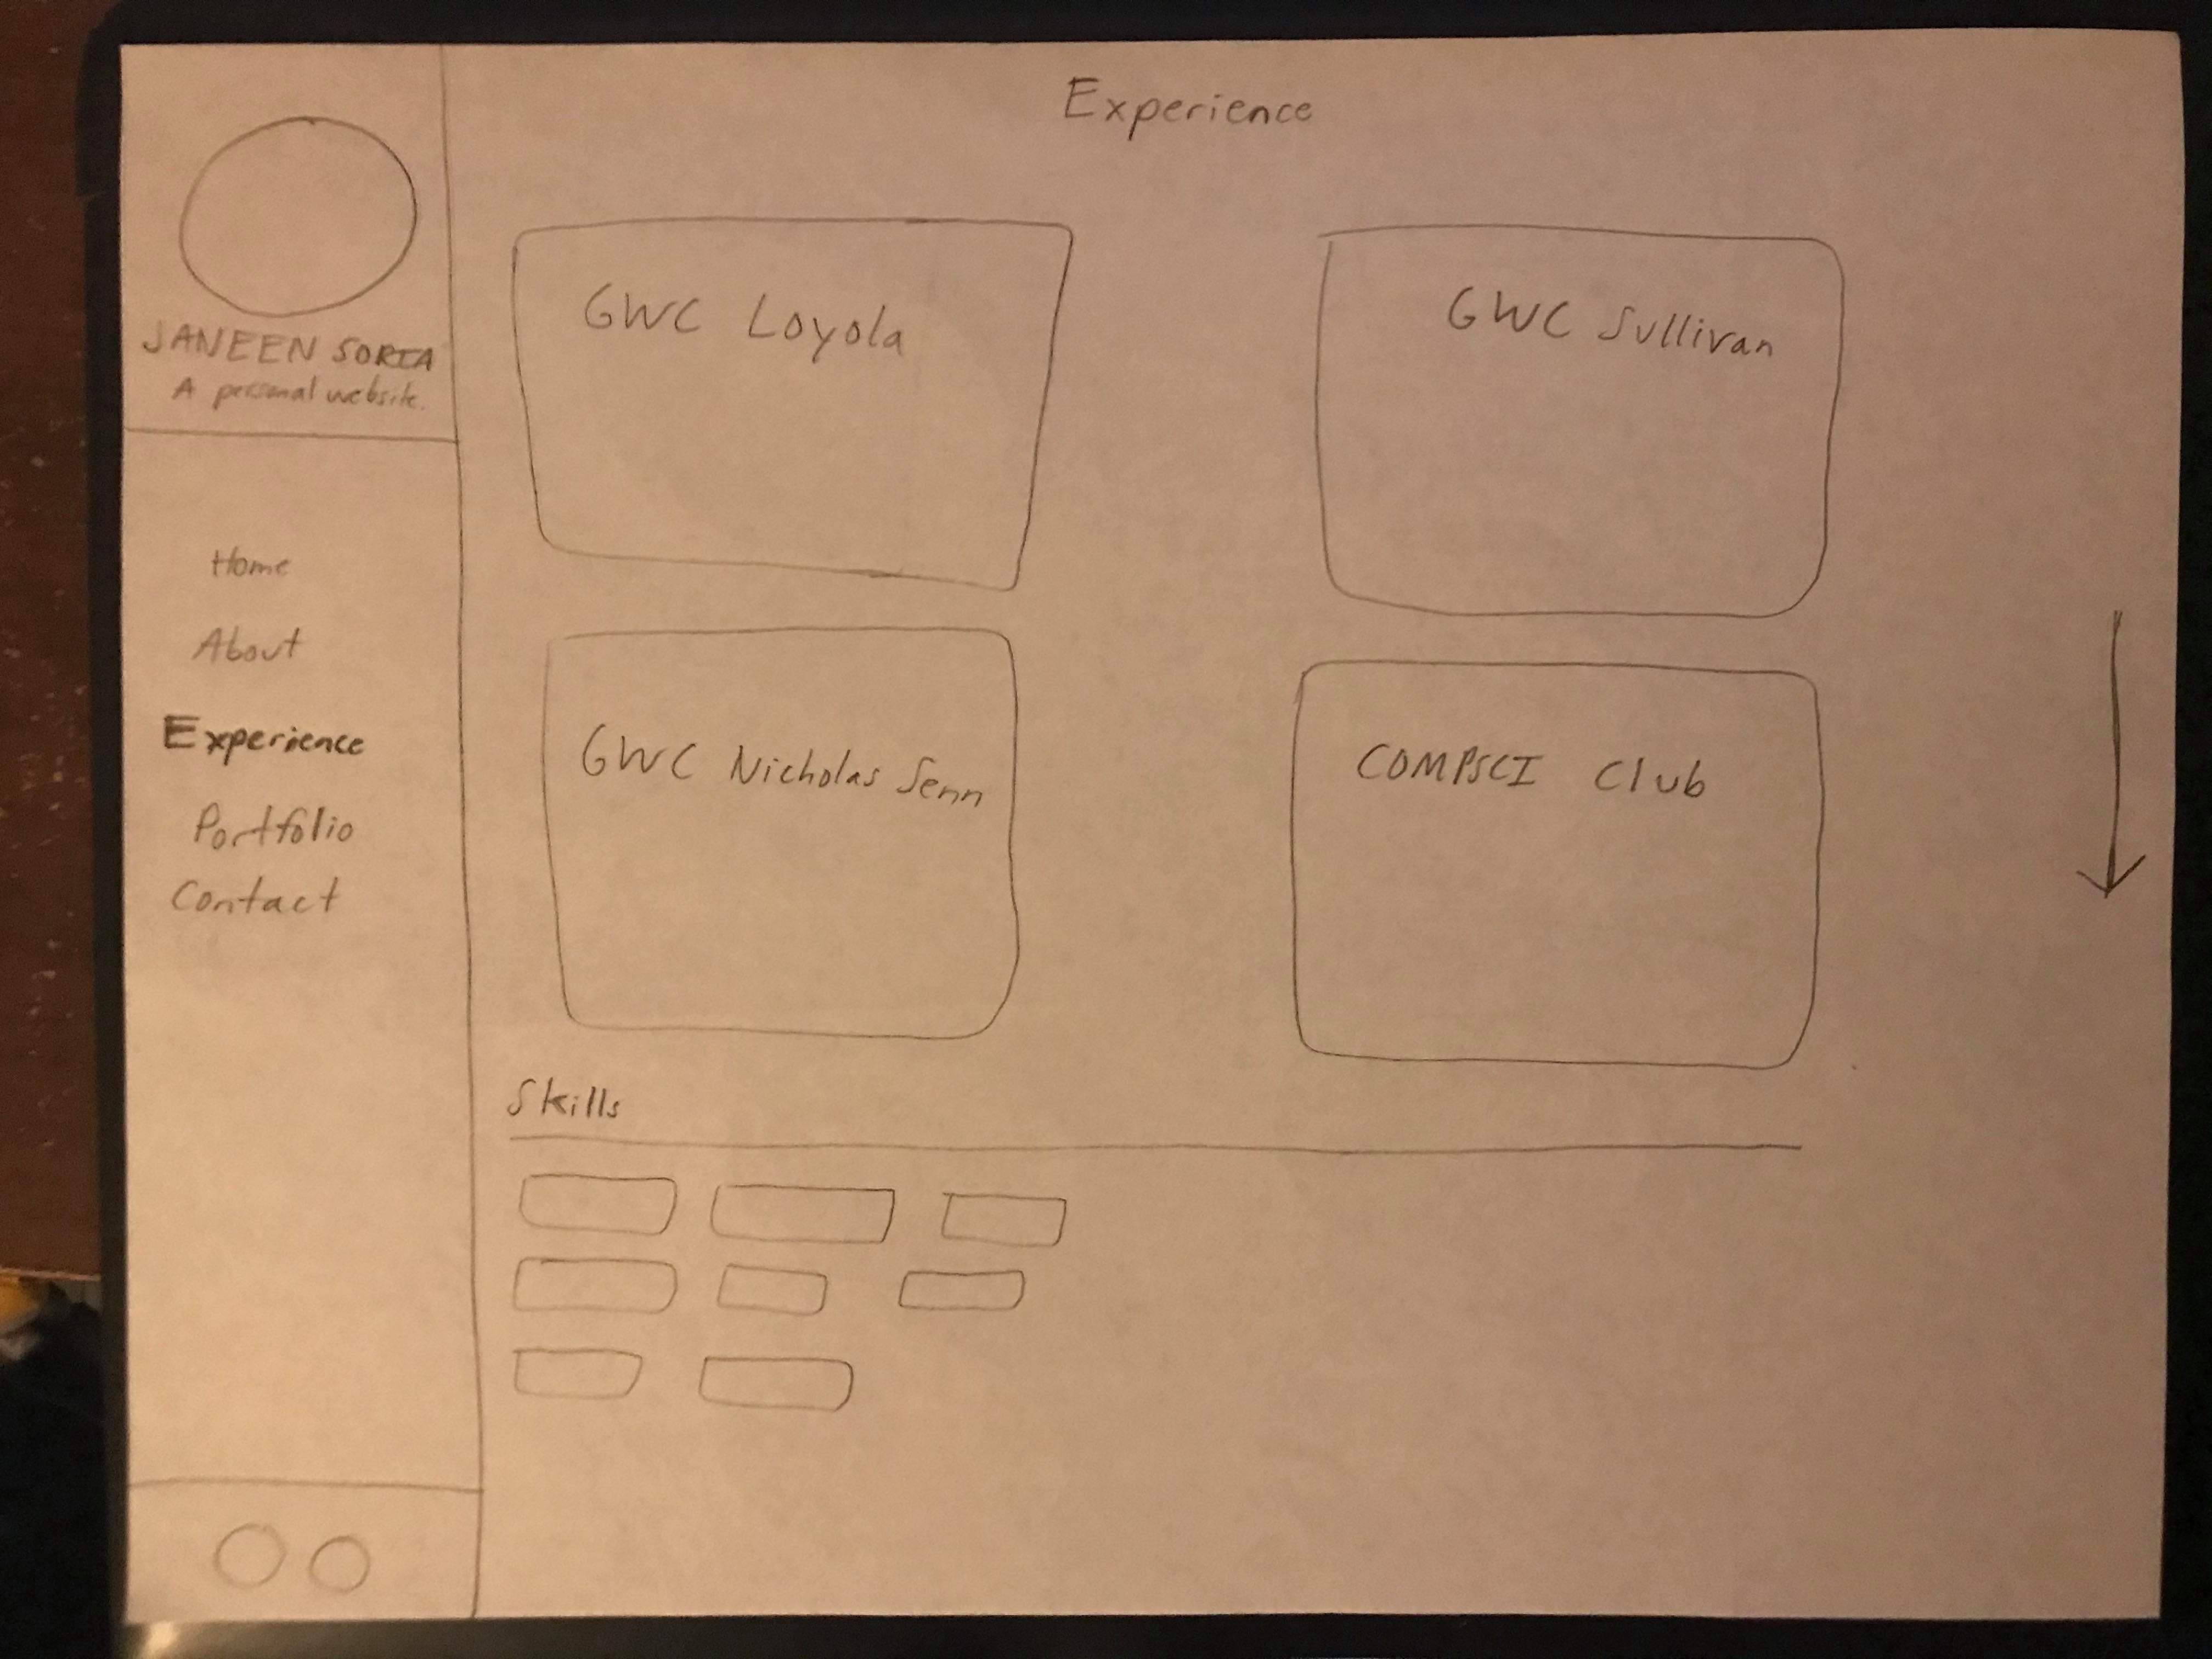 JANEEN SORIA
A personal website.
Home
About
Experience
Portfolio
Contact
Experience
GWC Loyola
GWC Sullivan
GWC Nicholas Senn
COMPSCI Club
Skills